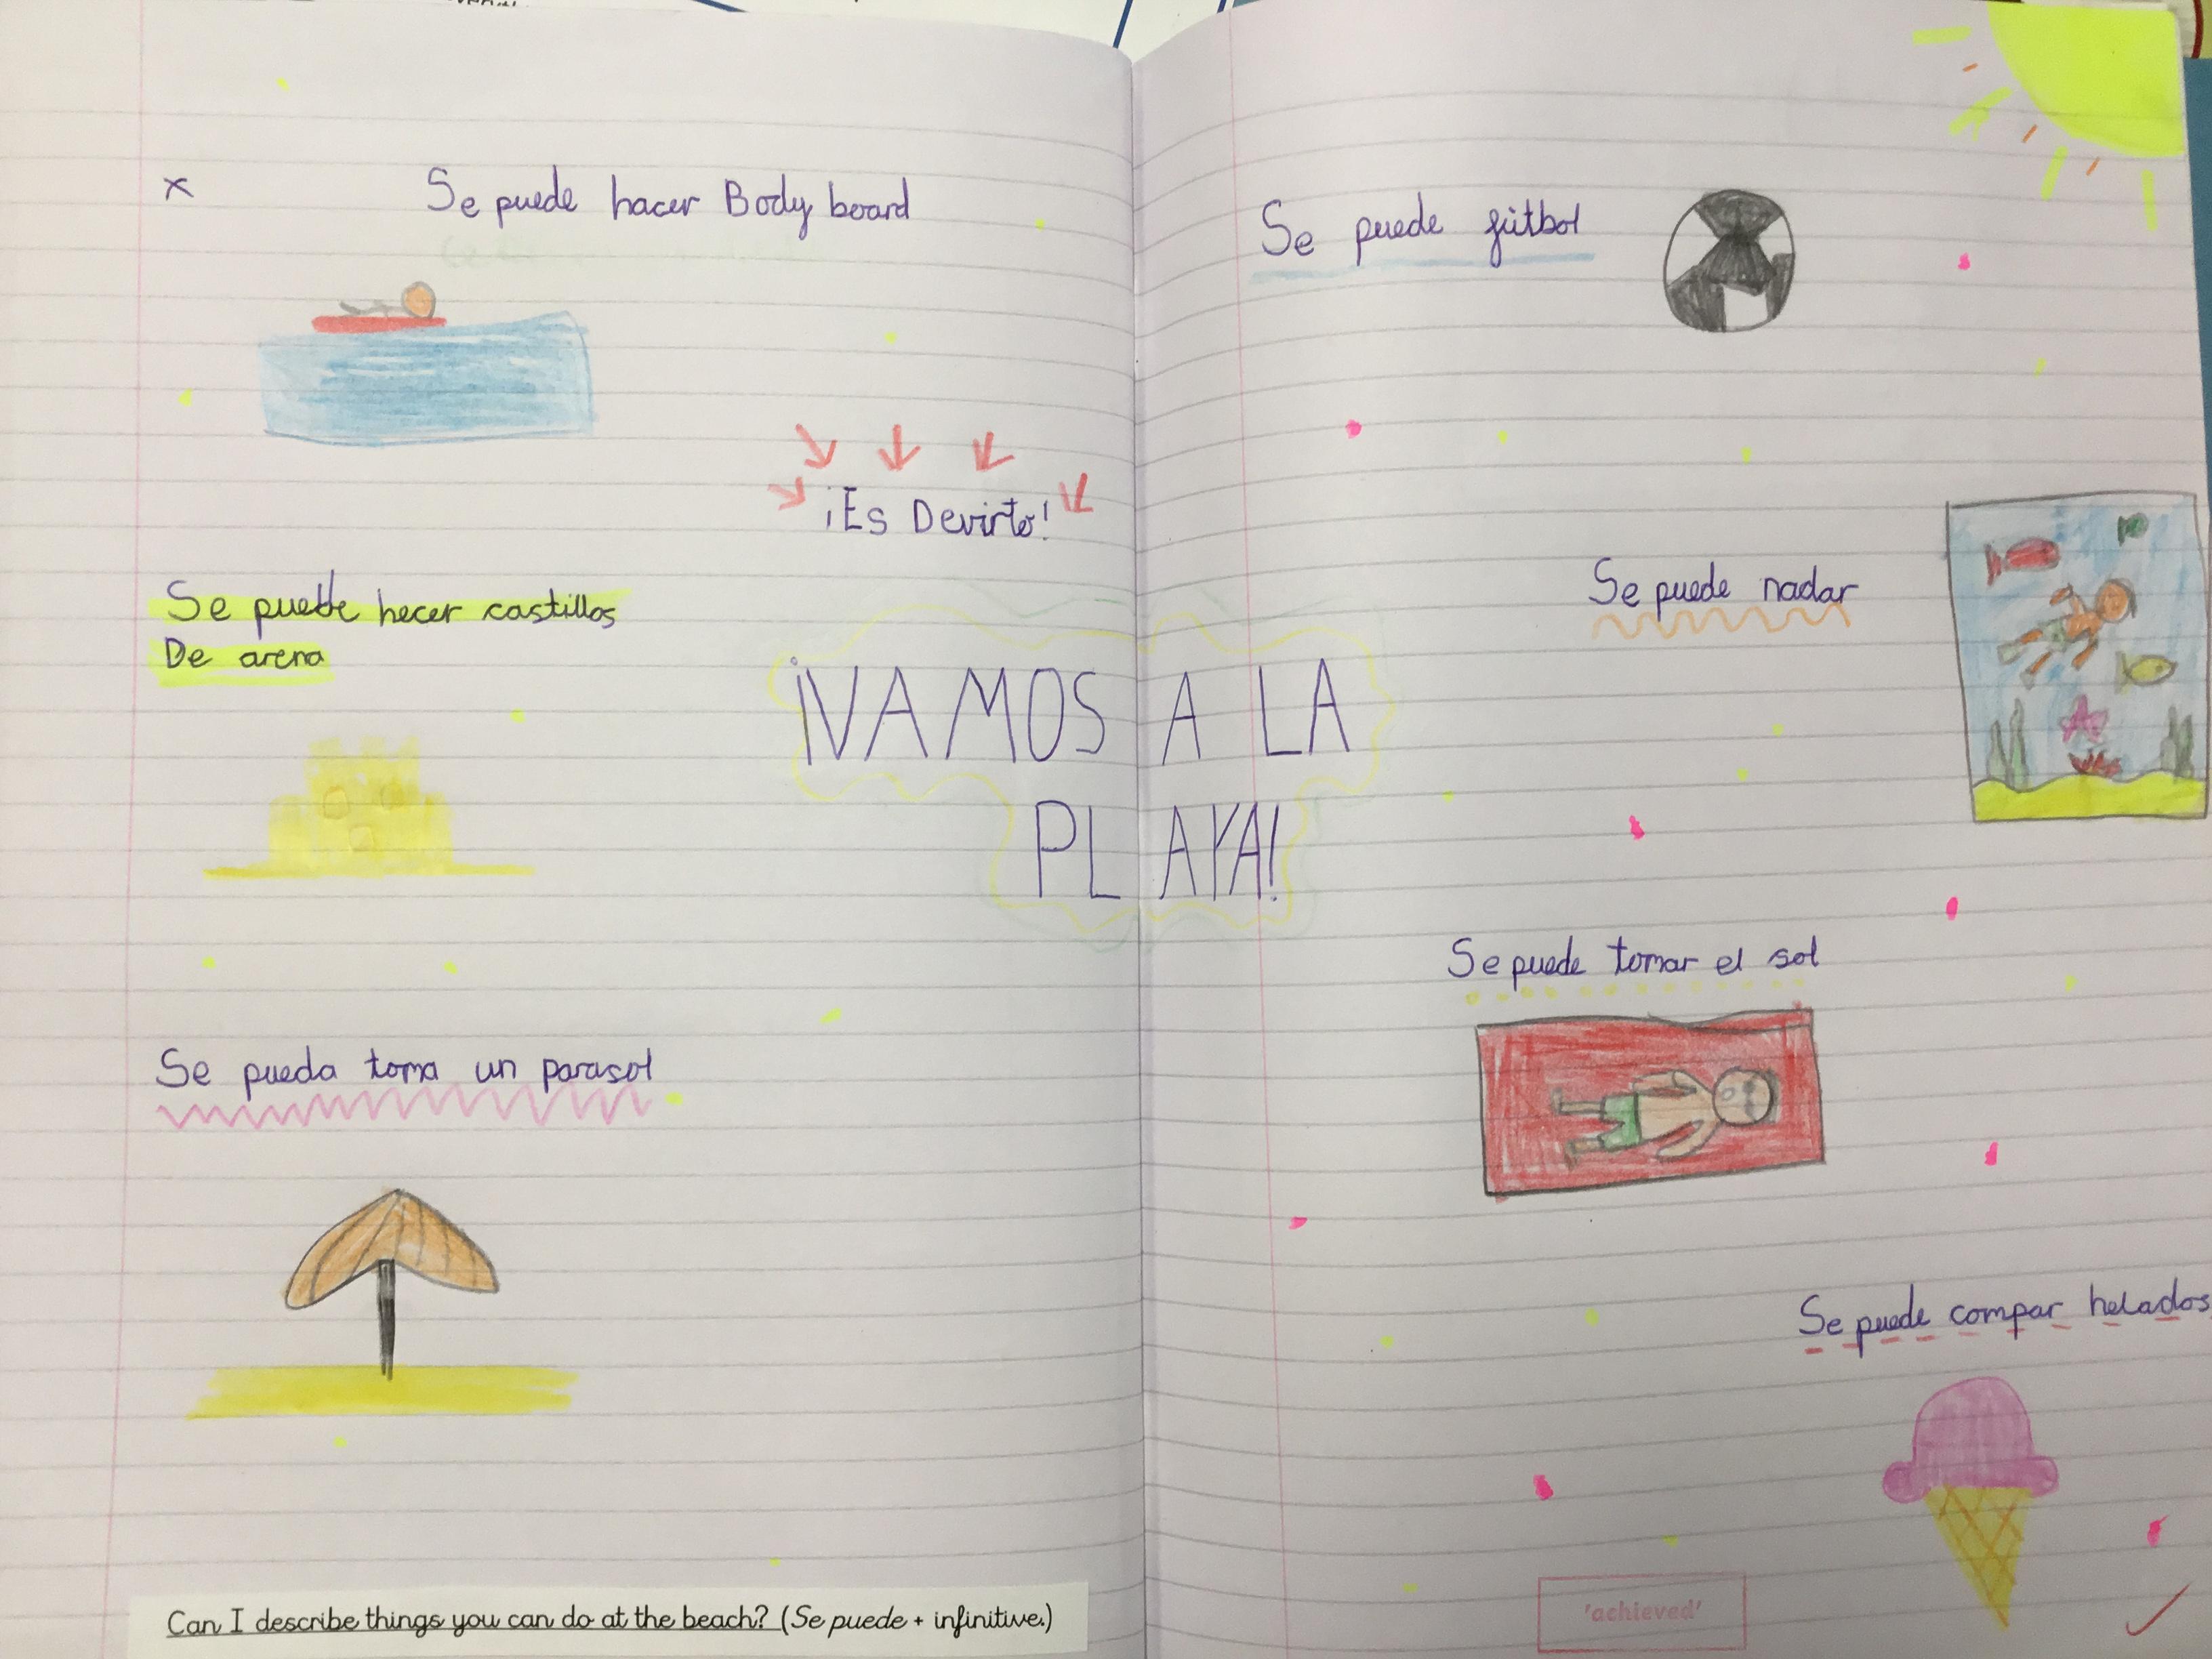 x
Se puede hacer Body board
¡Es Devirto!
Se puede hecer castillos
De arena
Se pueda toma un parasol
¡VAMOS A LA
PLAYA!
Se puede fútbol
Se puede nadar
Se puede tomar el sol
Se puede compar helados
Can I describe things you can do at the beach? (Se puede + infinitive.)
'achieved'